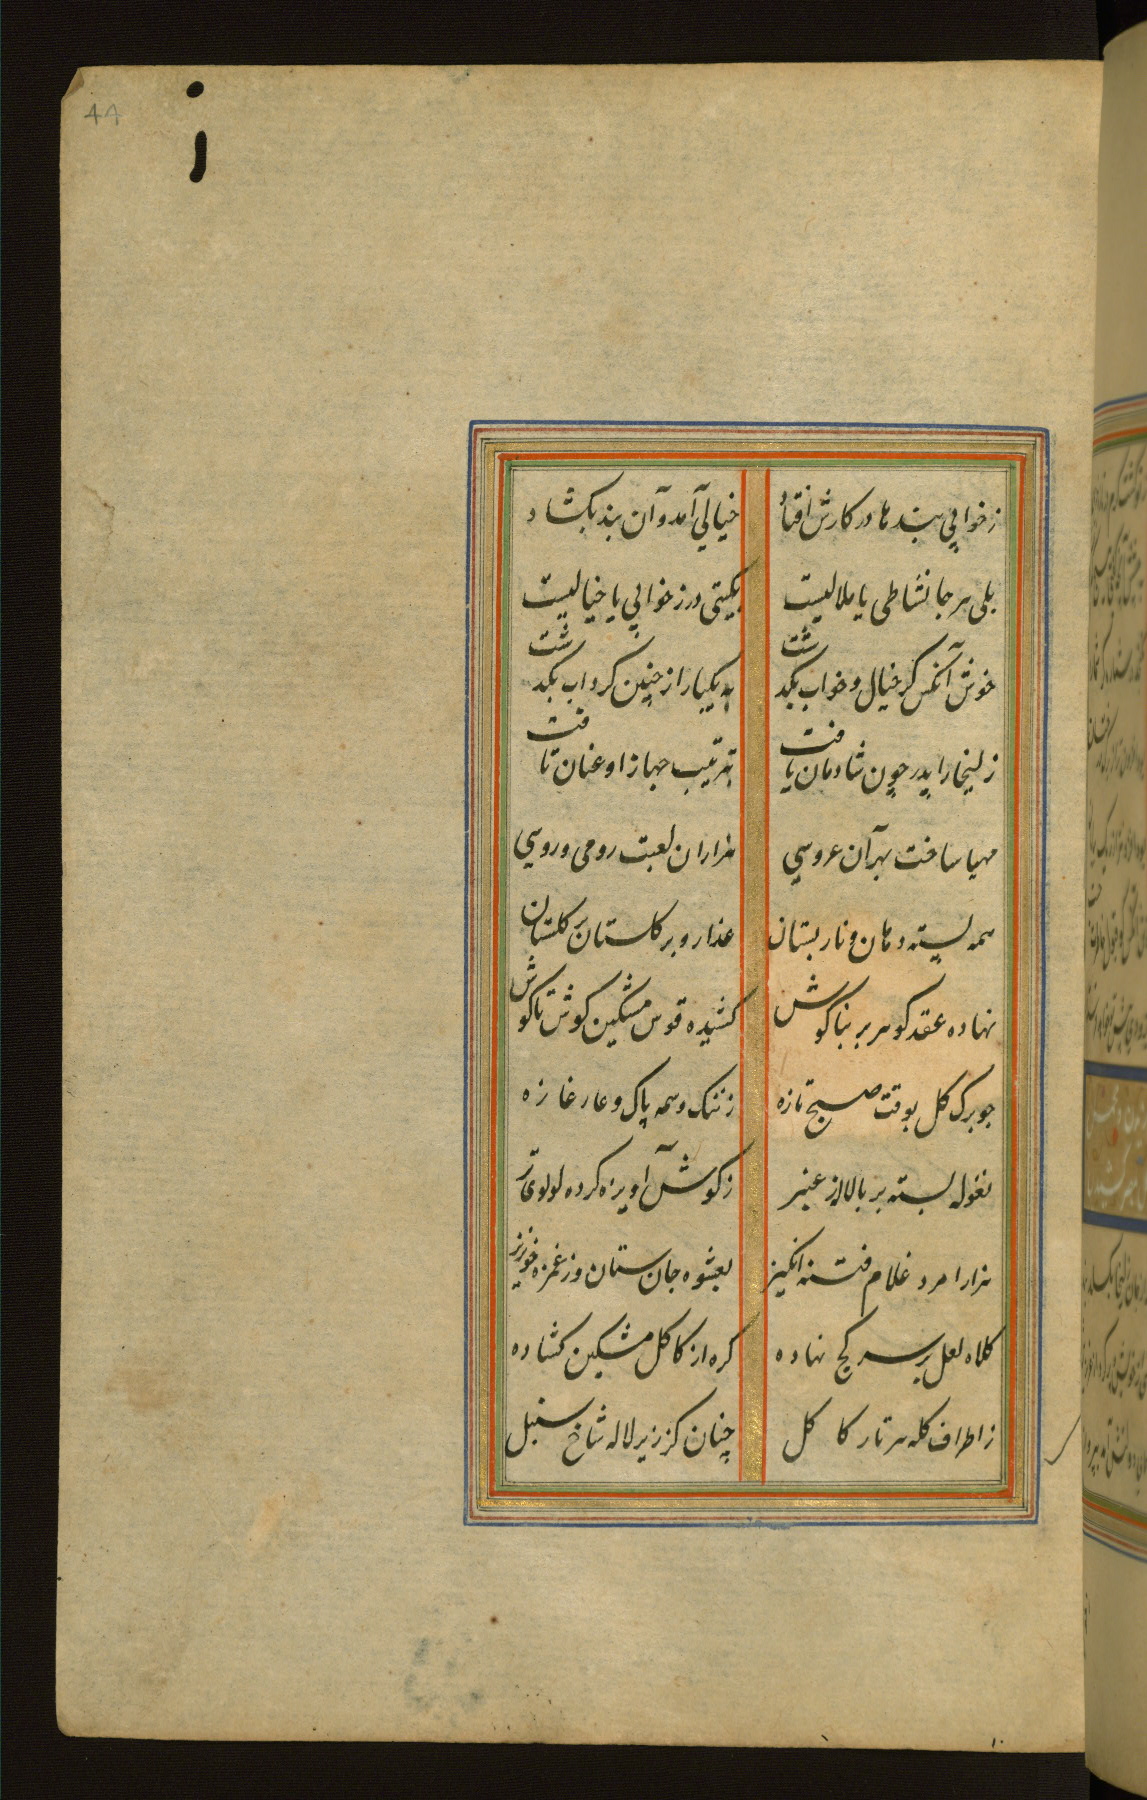 44
ز خوابی بندها در کارش افتاد خیالی آمد و آن بند بکشاد
بلی هر جا نشاطی یا ملالیست بگیتی در ز خوابی یا خیالیست
خوش آنکس کز خیال و خواب بگذشت به یکبار از چنین گرداب بگذشت
زلیخا را پدر چون شادمان یافت بترتیب جهاز او عنان تافت
مهیا ساخت بهر آن عروسی هزاران لعبت رومی و روسی
همه پسته دهان و نار پستان عذار و بر گلستان بر گلستان
نهاده عقد گوهر بر بناگوش کشیده قوس مشکین گوش تا گوش
چو برگ گل بوقت صبح تازه ز ننگ وسمه پاک و عار غازه
نغوله بسته بر بالا ز عنبر ز گوش آویزه کرده لولوی تر
هزار امرد غلام فتنه انگیز بعشوه جان ستان وز غمزه خونریز
کلاه لعل بر سر کج نهاده گره از کاکل مشکین گشاده
ز اطراف کله هر تار کاکل چنان کز زیر لاله شاخ سنبل